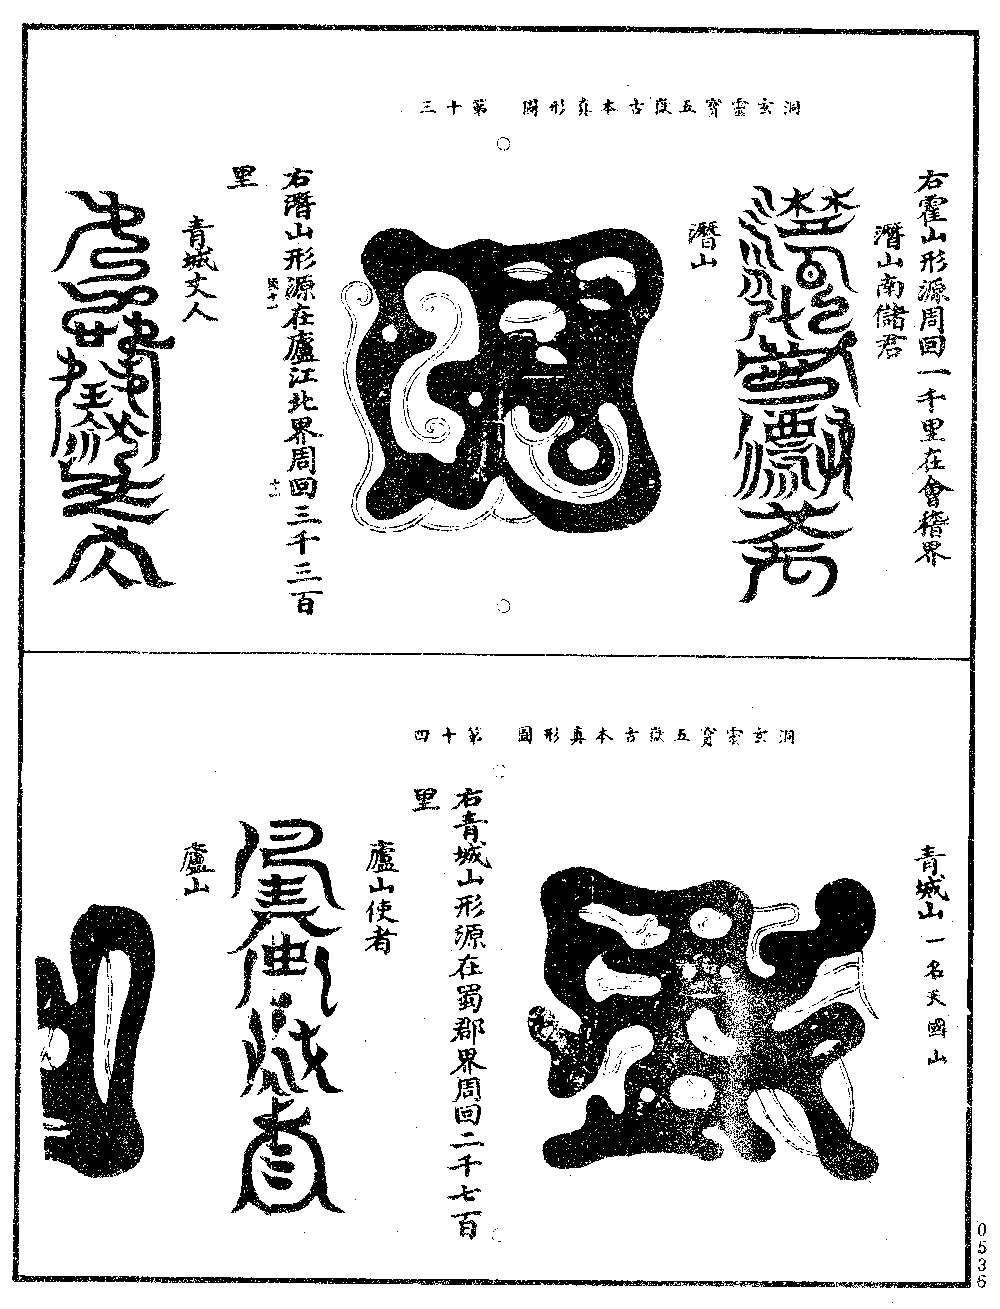 洞玄靈寶五嶽古本真形圖　第十三
右霍山形源周回一千里在會稽界
潛山南儲君
潛山
右潛山形源在廬江北界周回三千三百
里
青城丈人
洞玄靈寶五嶽古本真形圖　第十四
青城山一名天國山
右青城山形源在蜀郡界周回二千七百
里
廬山使者
廬山
0536